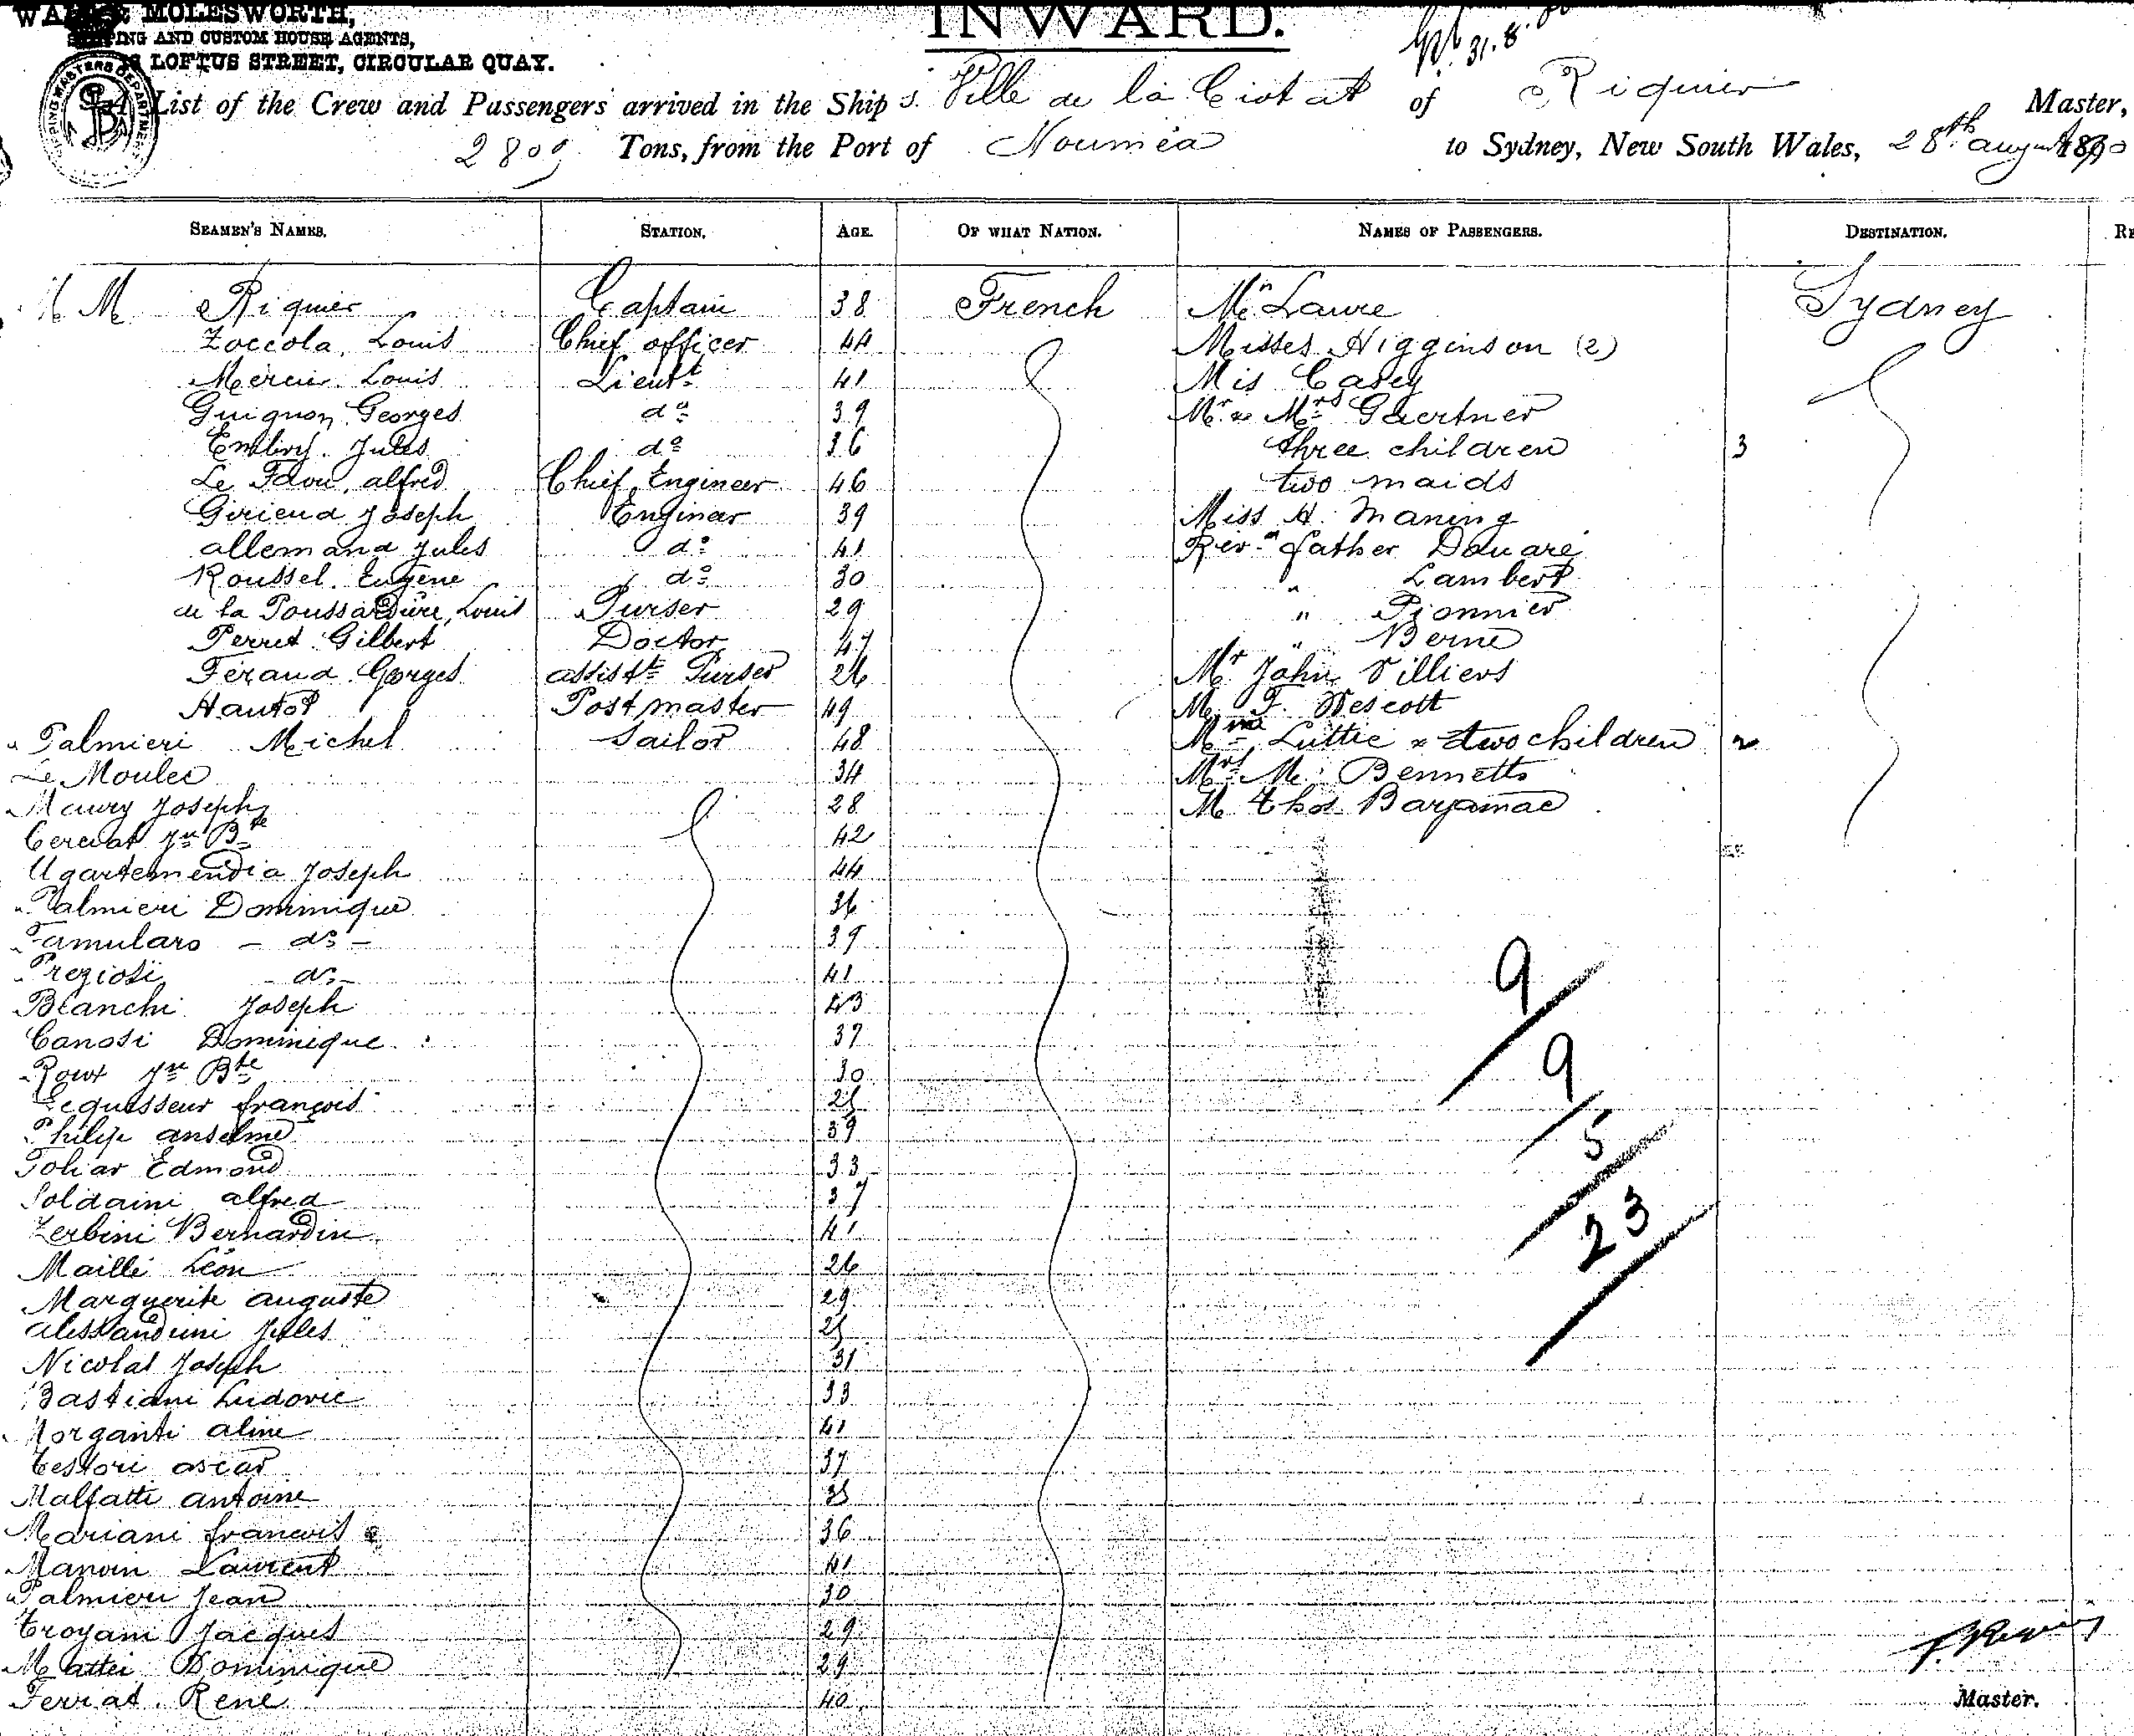 MOLESWORTH,
INWARD.
31.8.
AND CUSTOM HOUSE AGENTS,
LOFTUS STREET, CIRCULAR QUAY.
List of the Crew and Passengers arrived in the Ship S. Ville de la Ciotat of Riquier Master,
2809 Tons, from the Port of Nouméa to Sydney, New South Wales, 28th august 1890
SEAMEN'S NAMES. STATION. AGE. OF WHAT NATION. NAMES OF PASSENGERS. DESTINATION.
M Riquier Captain 38 French Mr Laure Sydney
Zoccola, Louis Chief officer 44 Misses Higginson (2)
Mercier Louis Lieut 41 Mis Casey
Guignon Georges do 39 Mr & Mrs Gaertner
Jules do 36 three children 3
Le Fdou, alfred Chief Engineer 46 two maids
Girieud Joseph Engineer 39 Miss H. Maning
allemand Jules do 41 Rev. father Douare
Roussel. Eugène do 30 " Lambert
de la Poussardière, Louis Purser 29 " Pionnier
Perret Gilbert Doctor 47 " Berne
Féraud Georges assistt Purser 26 Mr John Villiers
Hautot Postmaster 49 M F. Wescott
Palmieri Michel Sailor 48 Mme Luttie & two children 2
Le Moulec 34 Mrs M. Bennetts
Maury Joseph 28 M thos Baryamae
Jn Bte 42
Ugartemendia Joseph 44
Palmieri Dominique 36
Famularo - do - 39
Preziosi - do - 41
Bianchi Joseph 43
9
Canosi Dominique 37
Roux Jn Bte 30
9
Lequesseur françois 25
Philip anselme 39
5
Toliar Edmond 33
Soldaini alfred 37
23
Zerbini Bernardin 41
Maillé Léon 26
Marguerite auguste 29
alessandrini Jules 25
Nicolai Joseph 31
Bastiani Ludovic 33
Morganti aline 41
Testori oscar 37
Malfatti antoine 35
Mariani francois 36
Manvin Laurent 41
Palmieri Jean 30
Troyani Jacques 29
Mattei Dominique 29
Ferriat. René 40
Master.